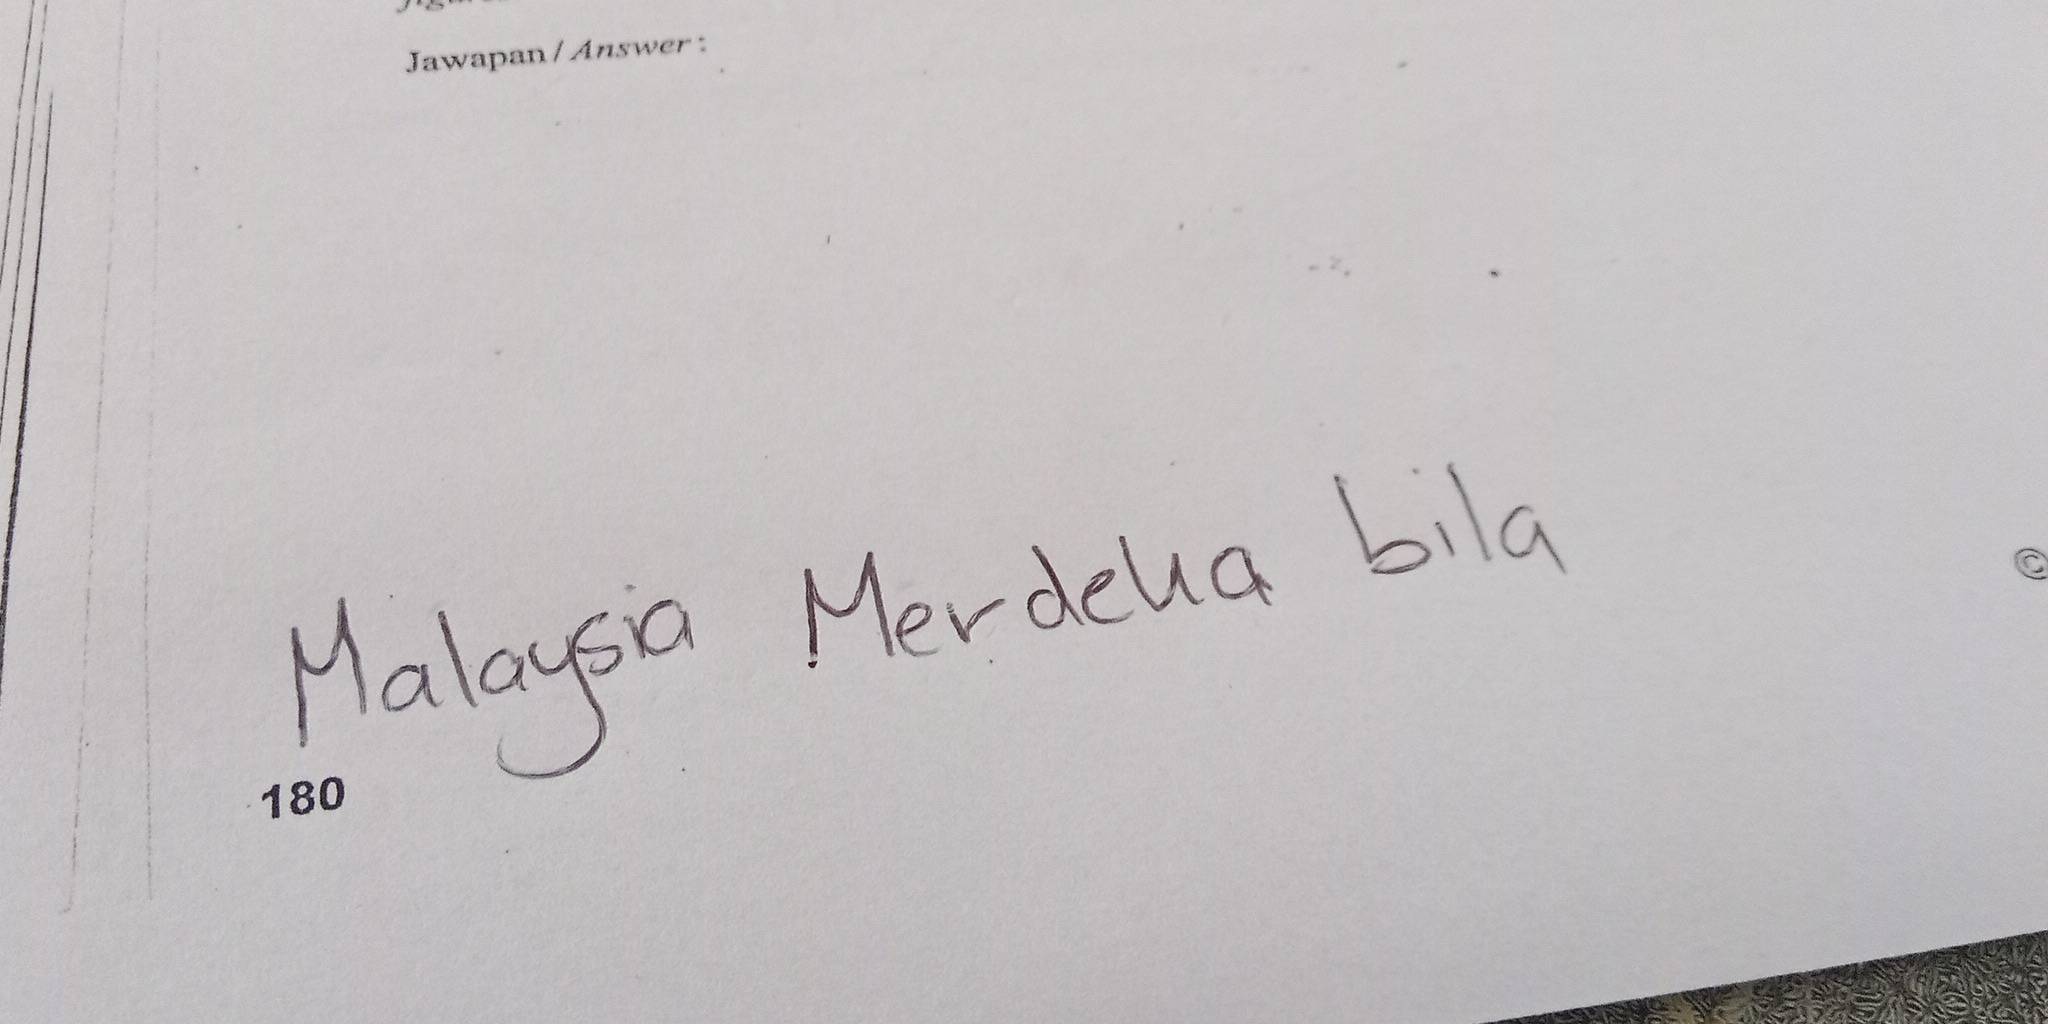 Jawapan / Answer :
Malaysia Merdeka bila
180
©